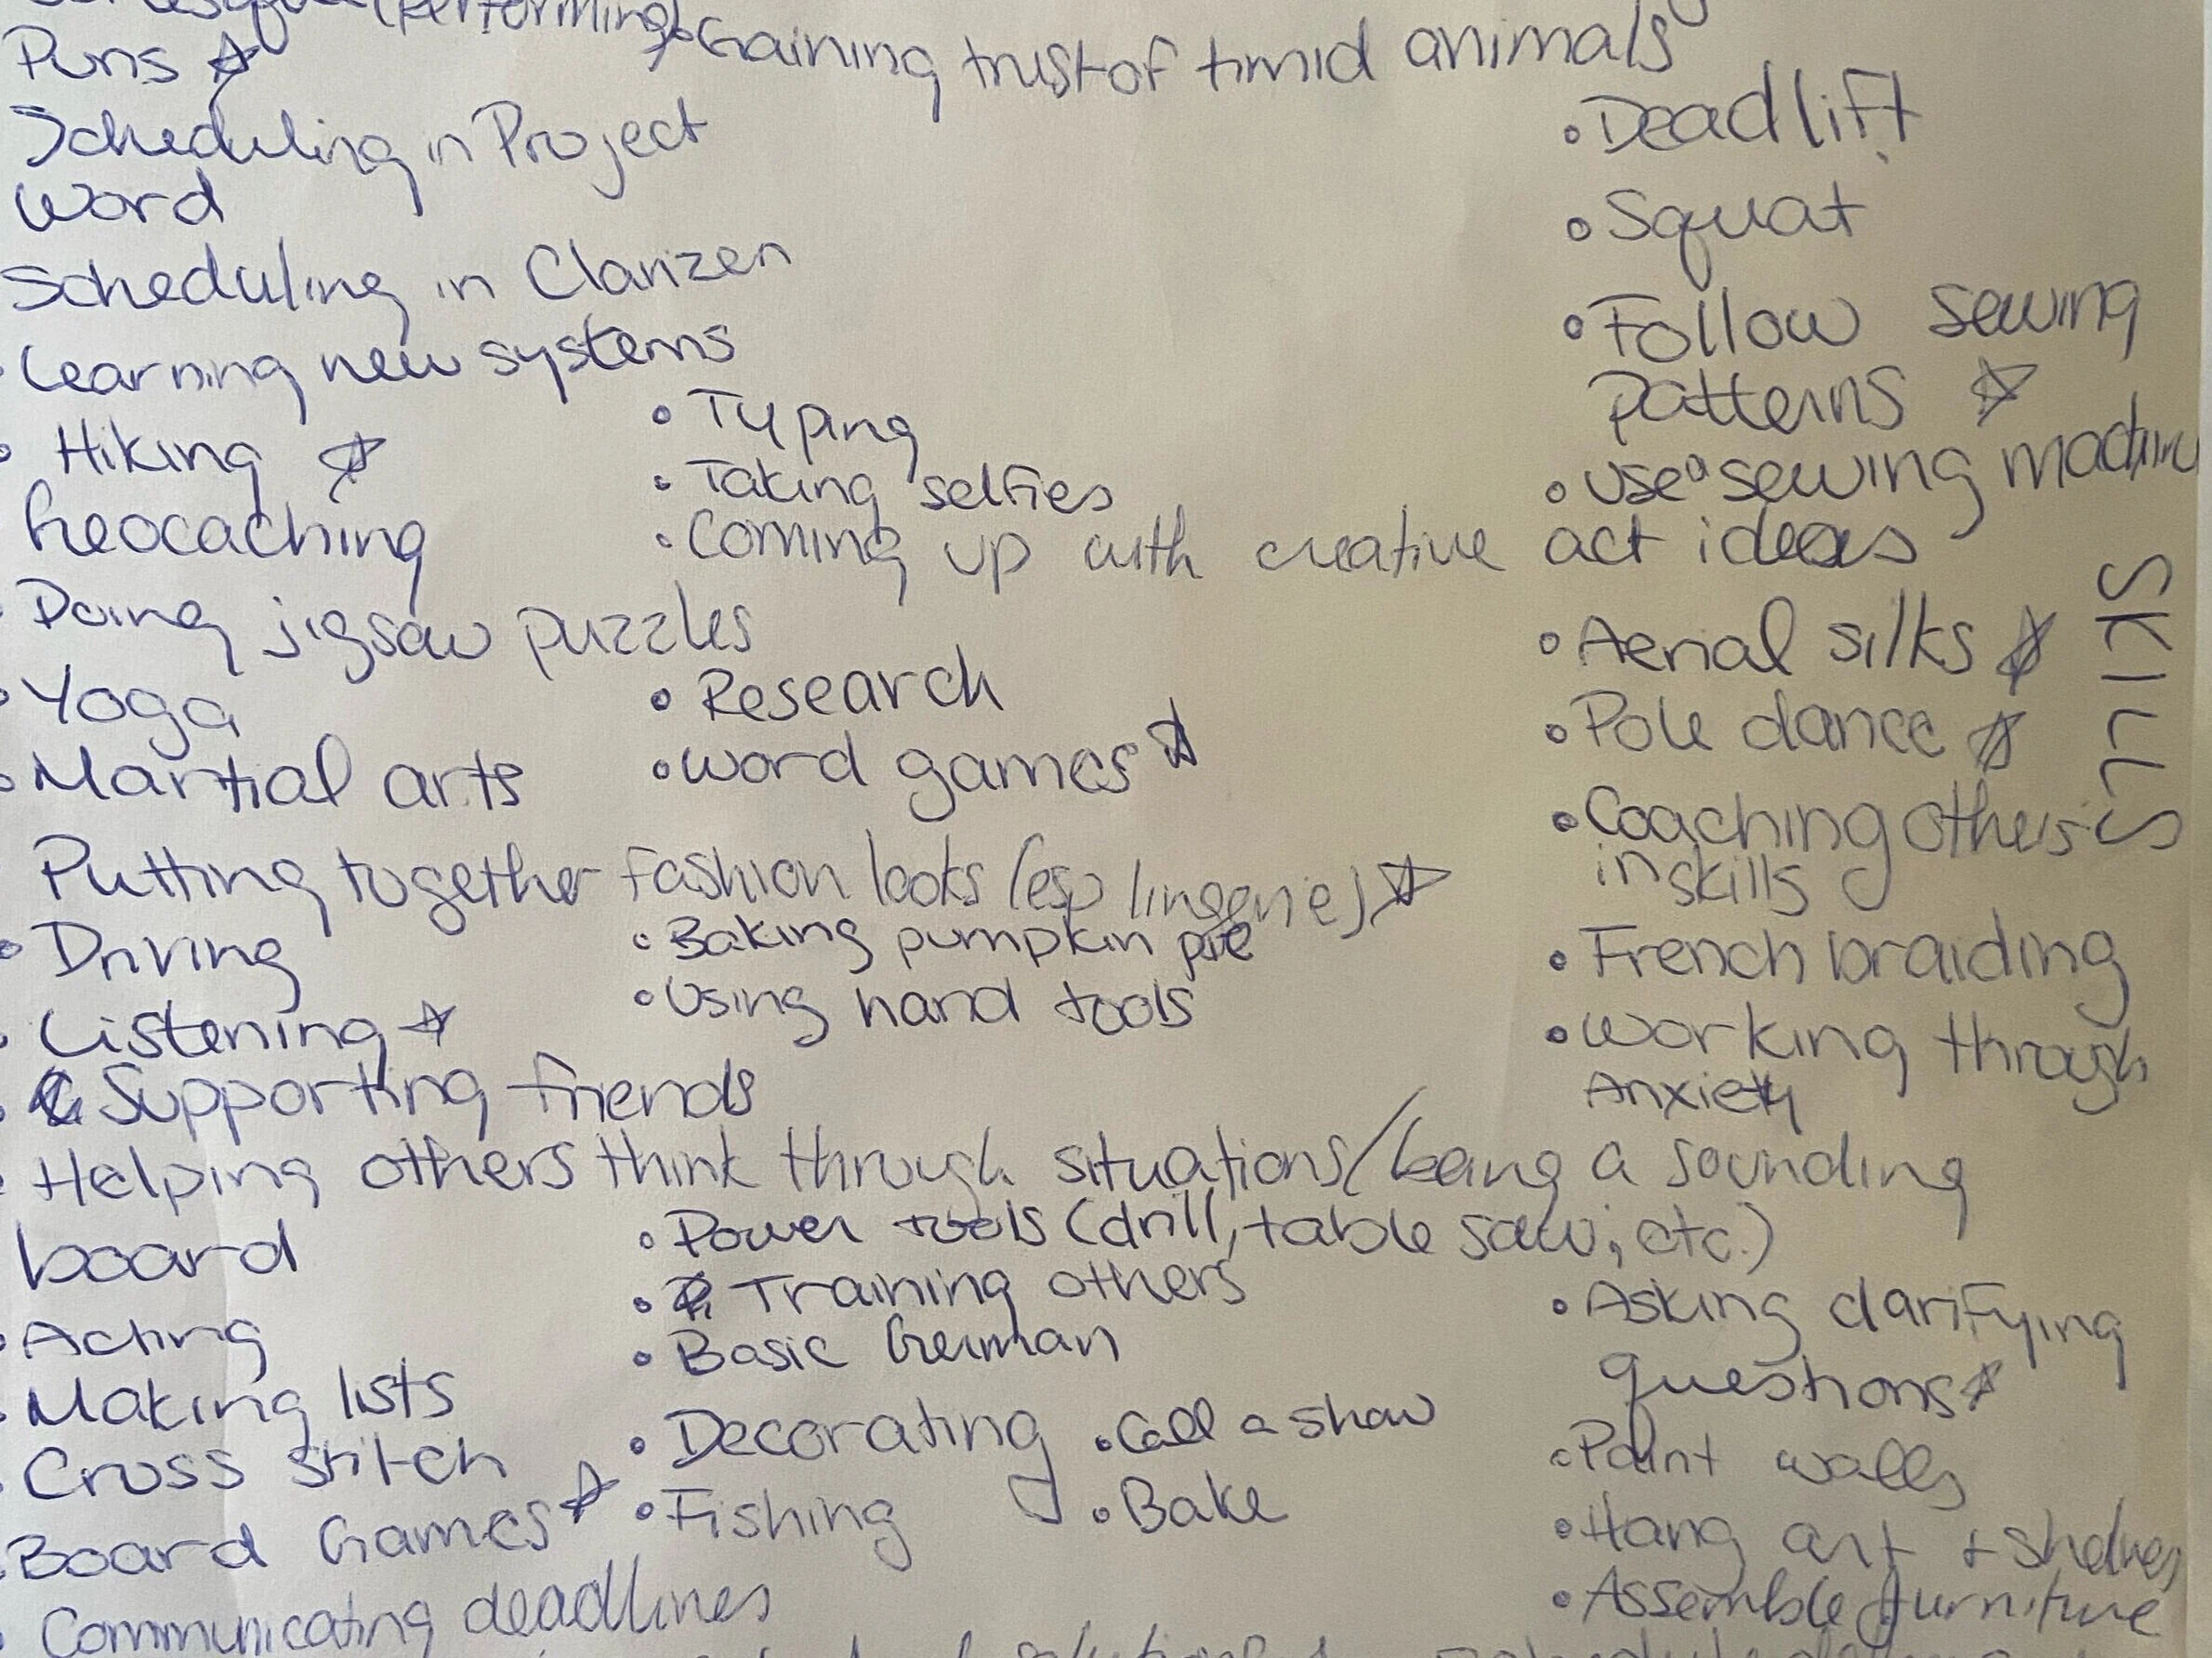 (Performing)
• Gaining trust of timid animals
Puns ☆
Scheduling in Project
Word
Scheduling in Clarizen
• Learning new systems
• Hiking ☆
Geocaching
• Doing jigsaw puzzles
• Yoga
• Martial arts
Putting together fashion looks (esp lingerie) ☆
• Driving
• Listening ☆
• Supporting friends
• Helping others think through situations/being a sounding
board
• Acting
• Making lists
• Cross stitch
• Board Games ☆
• Communicating deadlines
• Typing
• Taking selfies
• Coming up with creative act ideas
• Research
• Word games ☆
• Baking pumpkin pie
• Using hand tools
• Power tools (drill, table saw, etc.)
• Training others
• Basic German
• Decorating
• Fishing
• Call a show
• Bake
• Deadlift
• Squat
• Follow sewing
patterns ☆
• Use a sewing machine
• Aerial silks ☆
• Pole dance ☆
• Coaching others
in skills
• French braiding
• Working through
Anxiety
• Asking clarifying
questions ☆
• Paint walls
• Hang art + shelves
• Assemble furniture
SKILLS